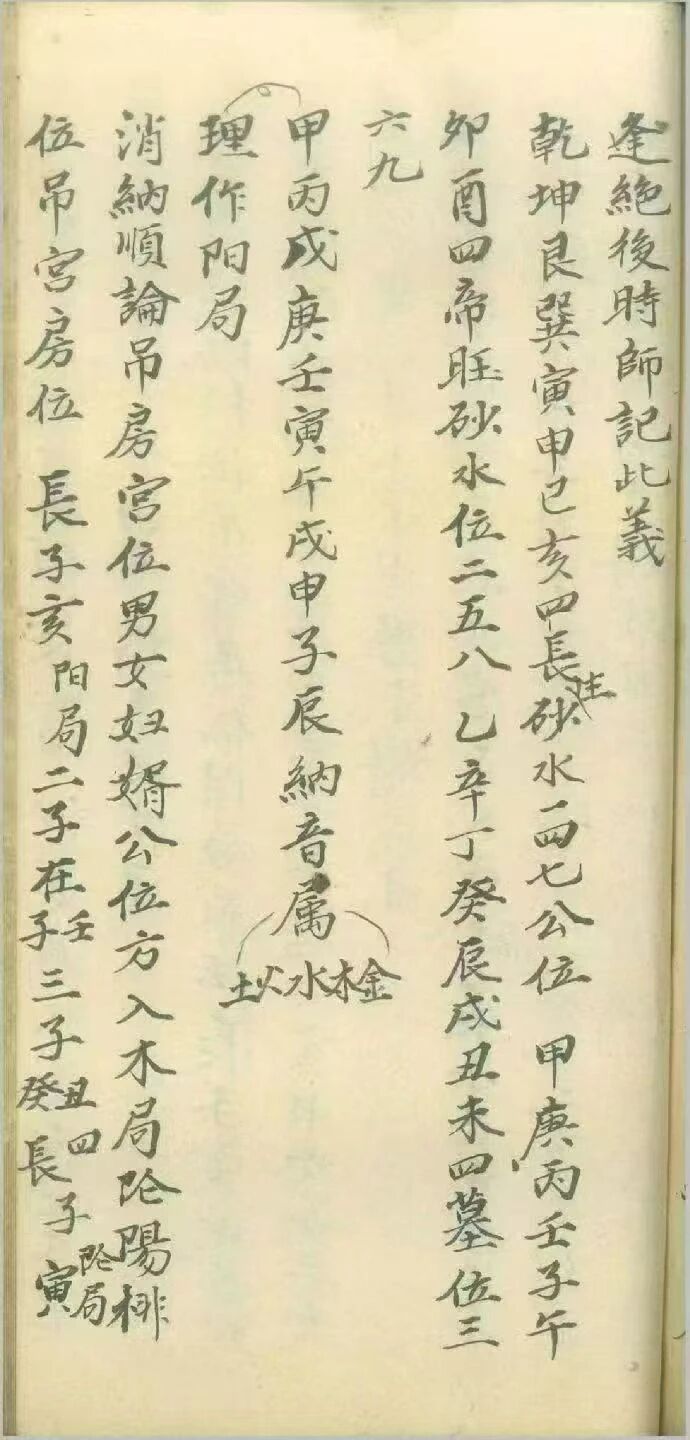 逢絕後時師記此義
乾坤艮巽寅申巳亥四長生砂水一四七公位 甲庚丙壬子午
卯酉四帝旺砂水位二五八 乙辛丁癸辰戌丑未四墓位三
六九
甲丙戊庚壬寅午戌申子辰納音属金木水火土
理作阳局
消納順論吊房宮位男女妇婿公位方入木局阴陽排
位吊宮房位 長子亥阳局二子在壬子三子丑癸四長子寅阴局